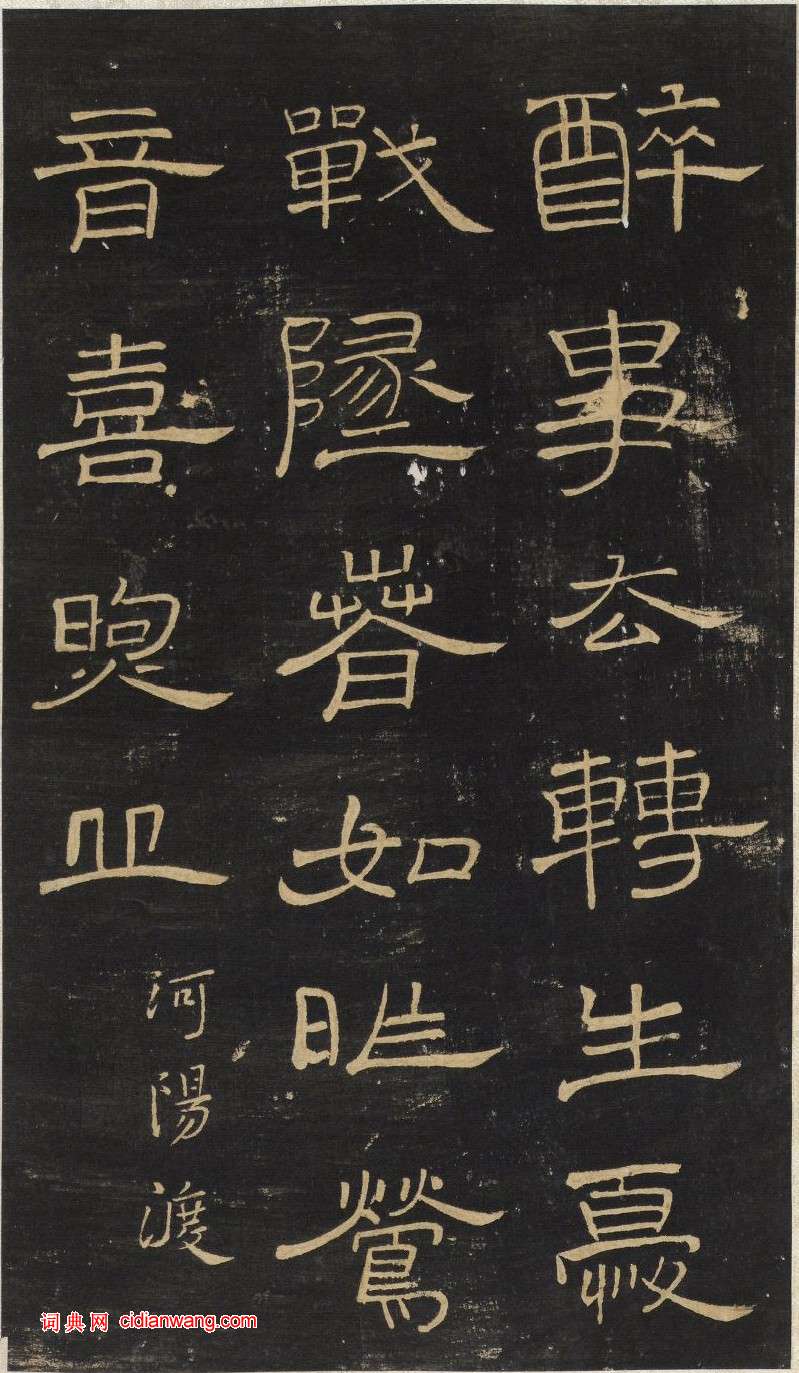 醉事厺轉生憂
戰如昨鶯
音喜煦
河陽渡
词典网 cidianwang.com